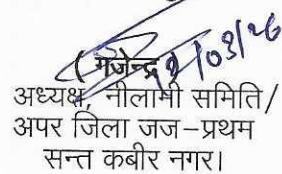 (गजेन्द्र)
/03/26
अध्यक्ष, नीलामी समिति/
अपर जिला जज-प्रथम
सन्त कबीर नगर।